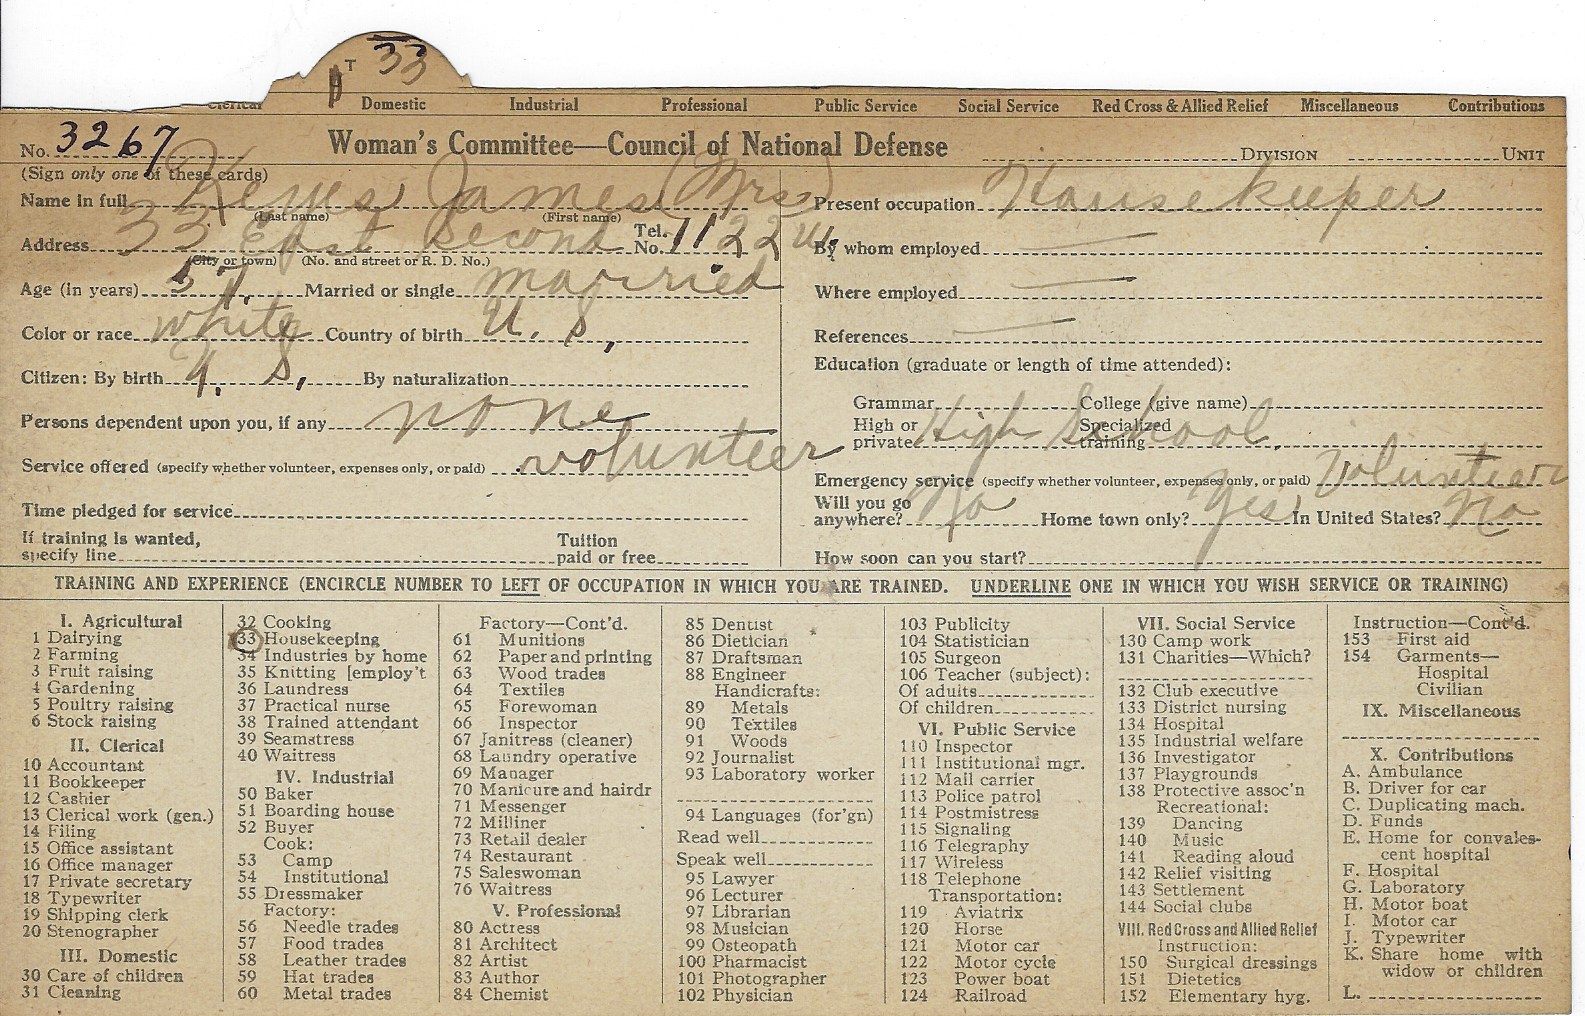 T 33
Clerical Domestic Industrial Professional Public Service Social Service Red Cross & Allied Relief Miscellaneous Contributions
No. 3267 Woman's Committee—Council of National Defense DIVISION UNIT
(Sign only one of these cards)
Name in full Keys James (Mrs)
(Last name) (First name)
Address 33 East Second Tel. No. 1122 W.
(City or town) (No. and street or R. D. No.)
Age (in years) 57. Married or single married
Color or race white Country of birth U. S,
Citizen: By birth U. S, By naturalization
Persons dependent upon you, if any none
Service offered (specify whether volunteer, expenses only, or paid) volunteer
Time pledged for service
If training is wanted,
specify line Tuition paid or free
Present occupation Housekeeper
By whom employed —
Where employed —
References —
Education (graduate or length of time attended):
Grammar College (give name)
High or private High School. Specialized training
Emergency service (specify whether volunteer, expenses only, or paid) Volunteer
Will you go anywhere? No Home town only? Yes In United States? No
How soon can you start?
TRAINING AND EXPERIENCE (ENCIRCLE NUMBER TO LEFT OF OCCUPATION IN WHICH YOU ARE TRAINED. UNDERLINE ONE IN WHICH YOU WISH SERVICE OR TRAINING)
I. Agricultural
1 Dairying
2 Farming
3 Fruit raising
4 Gardening
5 Poultry raising
6 Stock raising
II. Clerical
10 Accountant
11 Bookkeeper
12 Cashier
13 Clerical work (gen.)
14 Filing
15 Office assistant
16 Office manager
17 Private secretary
18 Typewriter
19 Shipping clerk
20 Stenographer
III. Domestic
30 Care of children
31 Cleaning
32 Cooking
33 Housekeeping
34 Industries by home
35 Knitting [employ't
36 Laundress
37 Practical nurse
38 Trained attendant
39 Seamstress
40 Waitress
IV. Industrial
50 Baker
51 Boarding house
52 Buyer
Cook:
53 Camp
54 Institutional
55 Dressmaker
Factory:
56 Needle trades
57 Food trades
58 Leather trades
59 Hat trades
60 Metal trades
Factory—Cont'd.
61 Munitions
62 Paper and printing
63 Wood trades
64 Textiles
65 Forewoman
66 Inspector
67 Janitress (cleaner)
68 Laundry operative
69 Manager
70 Manicure and hairdr
71 Messenger
72 Milliner
73 Retail dealer
74 Restaurant
75 Saleswoman
76 Waitress
V. Professional
80 Actress
81 Architect
82 Artist
83 Author
84 Chemist
85 Dentist
86 Dietician
87 Draftsman
88 Engineer
Handicrafts:
89 Metals
90 Textiles
91 Woods
92 Journalist
93 Laboratory worker
94 Languages (for'gn)
Read well
Speak well
95 Lawyer
96 Lecturer
97 Librarian
98 Musician
99 Osteopath
100 Pharmacist
101 Photographer
102 Physician
103 Publicity
104 Statistician
105 Surgeon
106 Teacher (subject):
Of adults
Of children
VI. Public Service
110 Inspector
111 Institutional mgr.
112 Mail carrier
113 Police patrol
114 Postmistress
115 Signaling
116 Telegraphy
117 Wireless
118 Telephone
Transportation:
119 Aviatrix
120 Horse
121 Motor car
122 Motor cycle
123 Power boat
124 Railroad
VII. Social Service
130 Camp work
131 Charities—Which?
132 Club executive
133 District nursing
134 Hospital
135 Industrial welfare
136 Investigator
137 Playgrounds
138 Protective assoc'n
Recreational:
139 Dancing
140 Music
141 Reading aloud
142 Relief visiting
143 Settlement
144 Social clubs
VIII. Red Cross and Allied Relief
Instruction:
150 Surgical dressings
151 Dietetics
152 Elementary hyg.
Instruction—Cont'd.
153 First aid
154 Garments—
Hospital
Civilian
IX. Miscellaneous
X. Contributions
A. Ambulance
B. Driver for car
C. Duplicating mach.
D. Funds
E. Home for convales-
cent hospital
F. Hospital
G. Laboratory
H. Motor boat
I. Motor car
J. Typewriter
K. Share home with
widow or children
L.